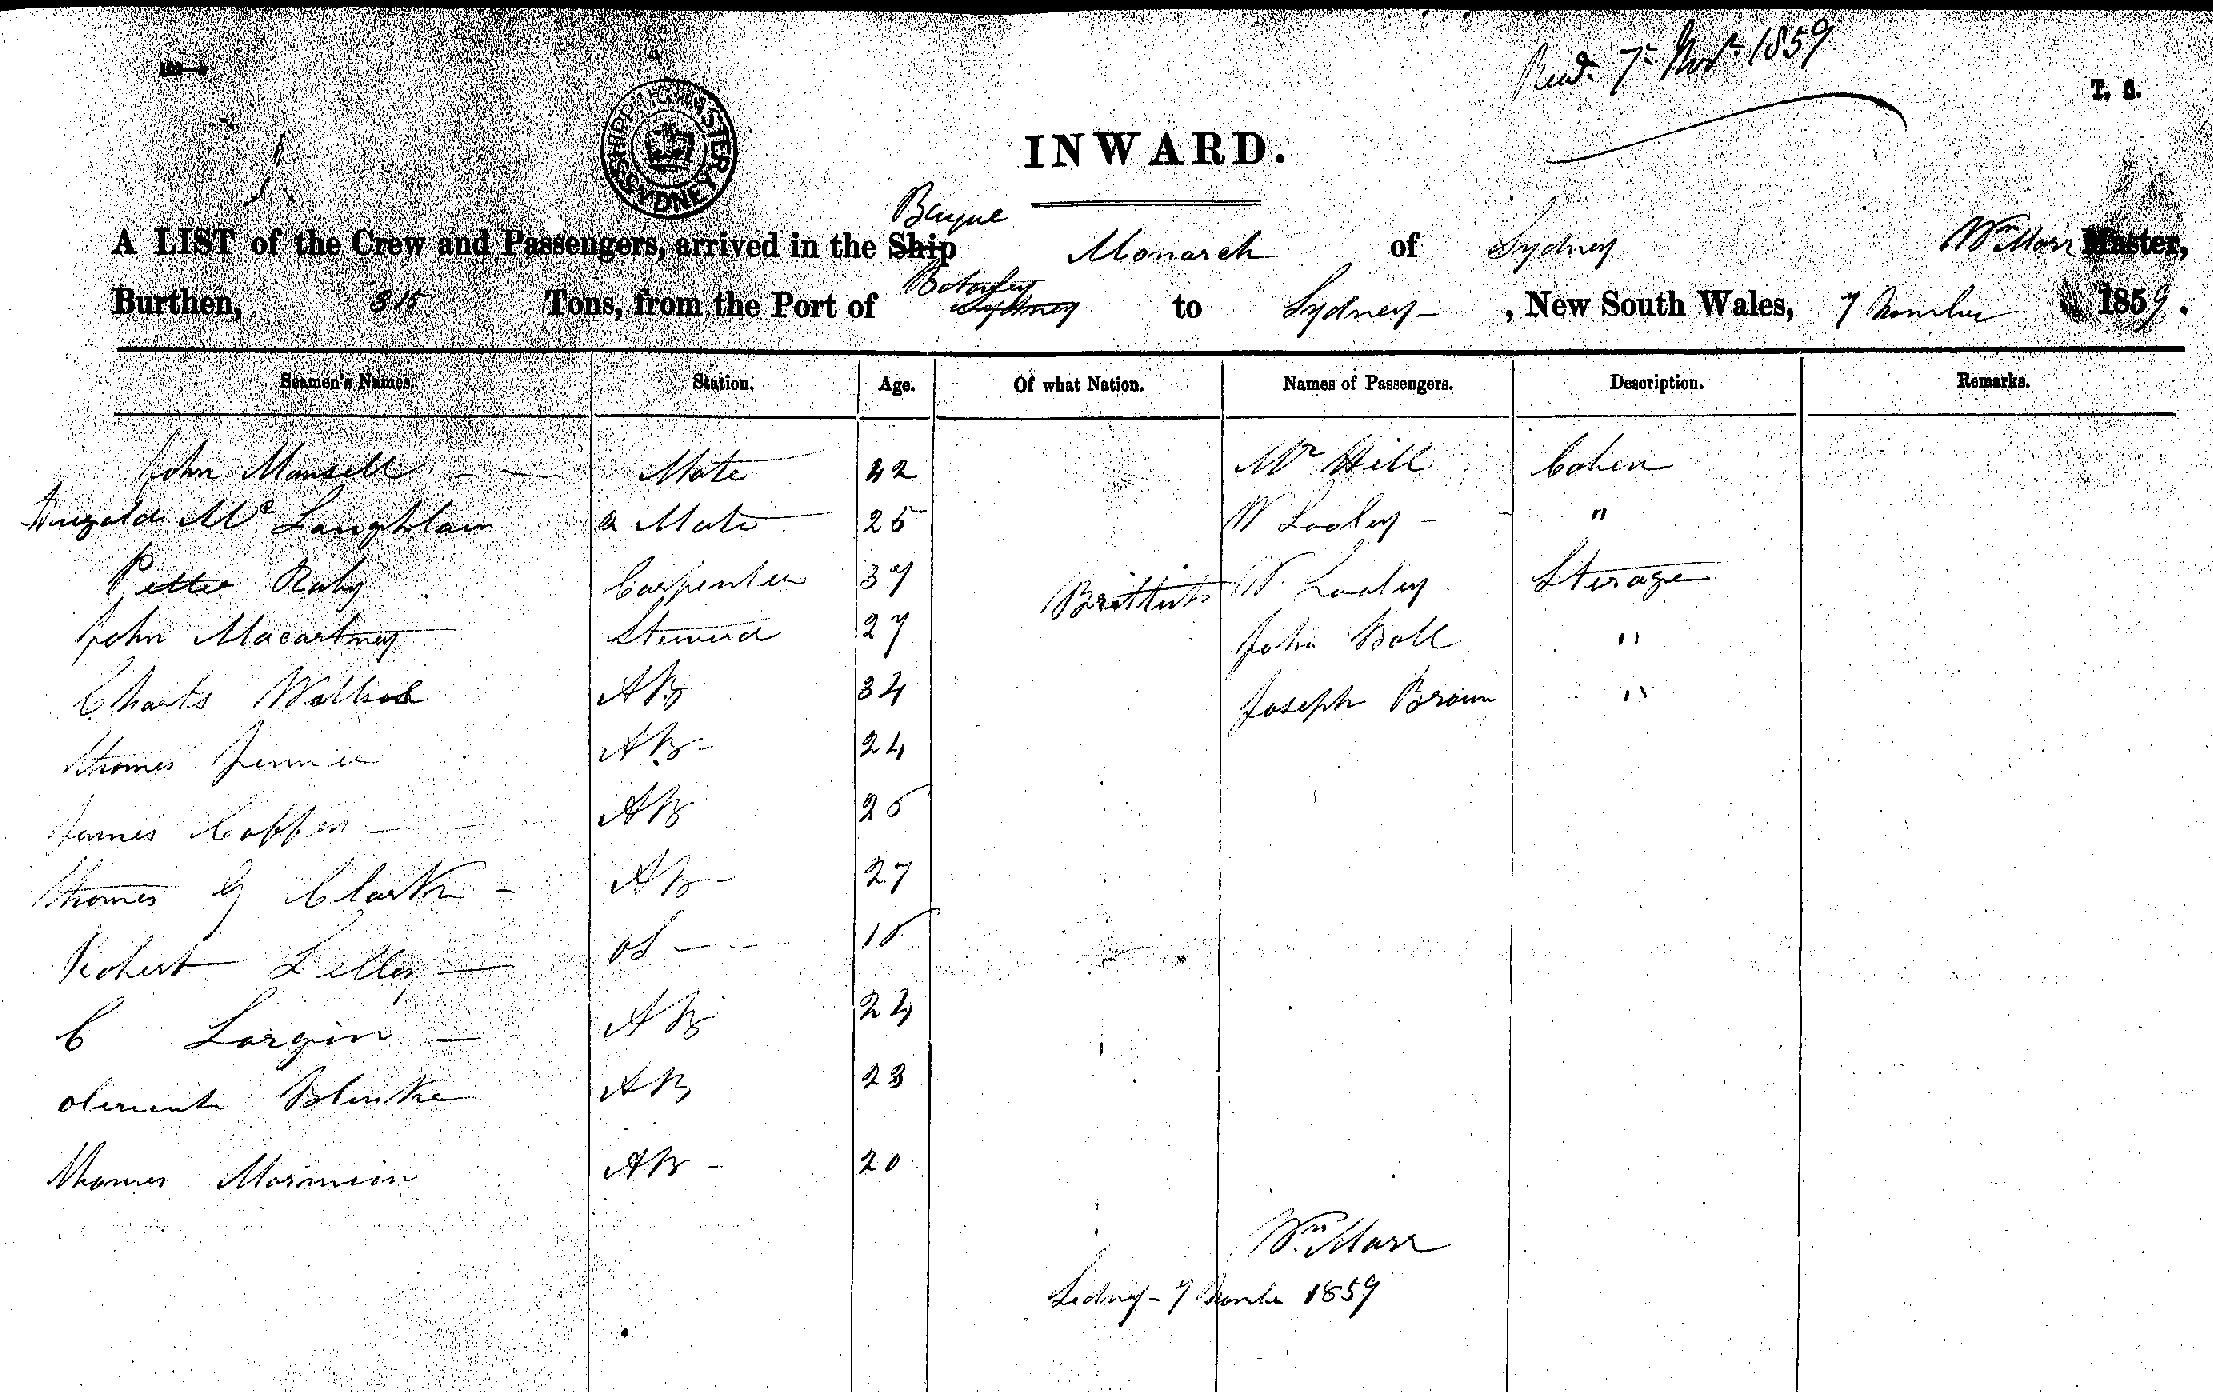 Recd. 7th Novr. 1859
T. S.
SHIPPING MASTER SYDNEY
INWARD.
Barque
A LIST of the Crew and Passengers, arrived in the Ship Monarch of Sydney Wm Marr Master,
Burthen, 315 Tons, from the Port of Sydney to Sydney , New South Wales, 7 November 1859.
Seamen's Names. Station. Age. Of what Nation. Names of Passengers. Description. Remarks.
John Mansell Mate 42 Mr Hill Caben
Mc Laughlain Mate 25 W Looley "
Petter Raby Carpenter 37 Brittish W. Looley Sterage
John Macartney Steward 27 John Boll "
Charls 34 Joseph Brown "
AB
Thomas AB 24
James Coffen AB 25
Thomas G Clark AB 27
Robert Lelley OS 18
C Largin AB 24
Blinke AB 23
Thomas AB 20
Wm Marr
Sidney 7 November 1859